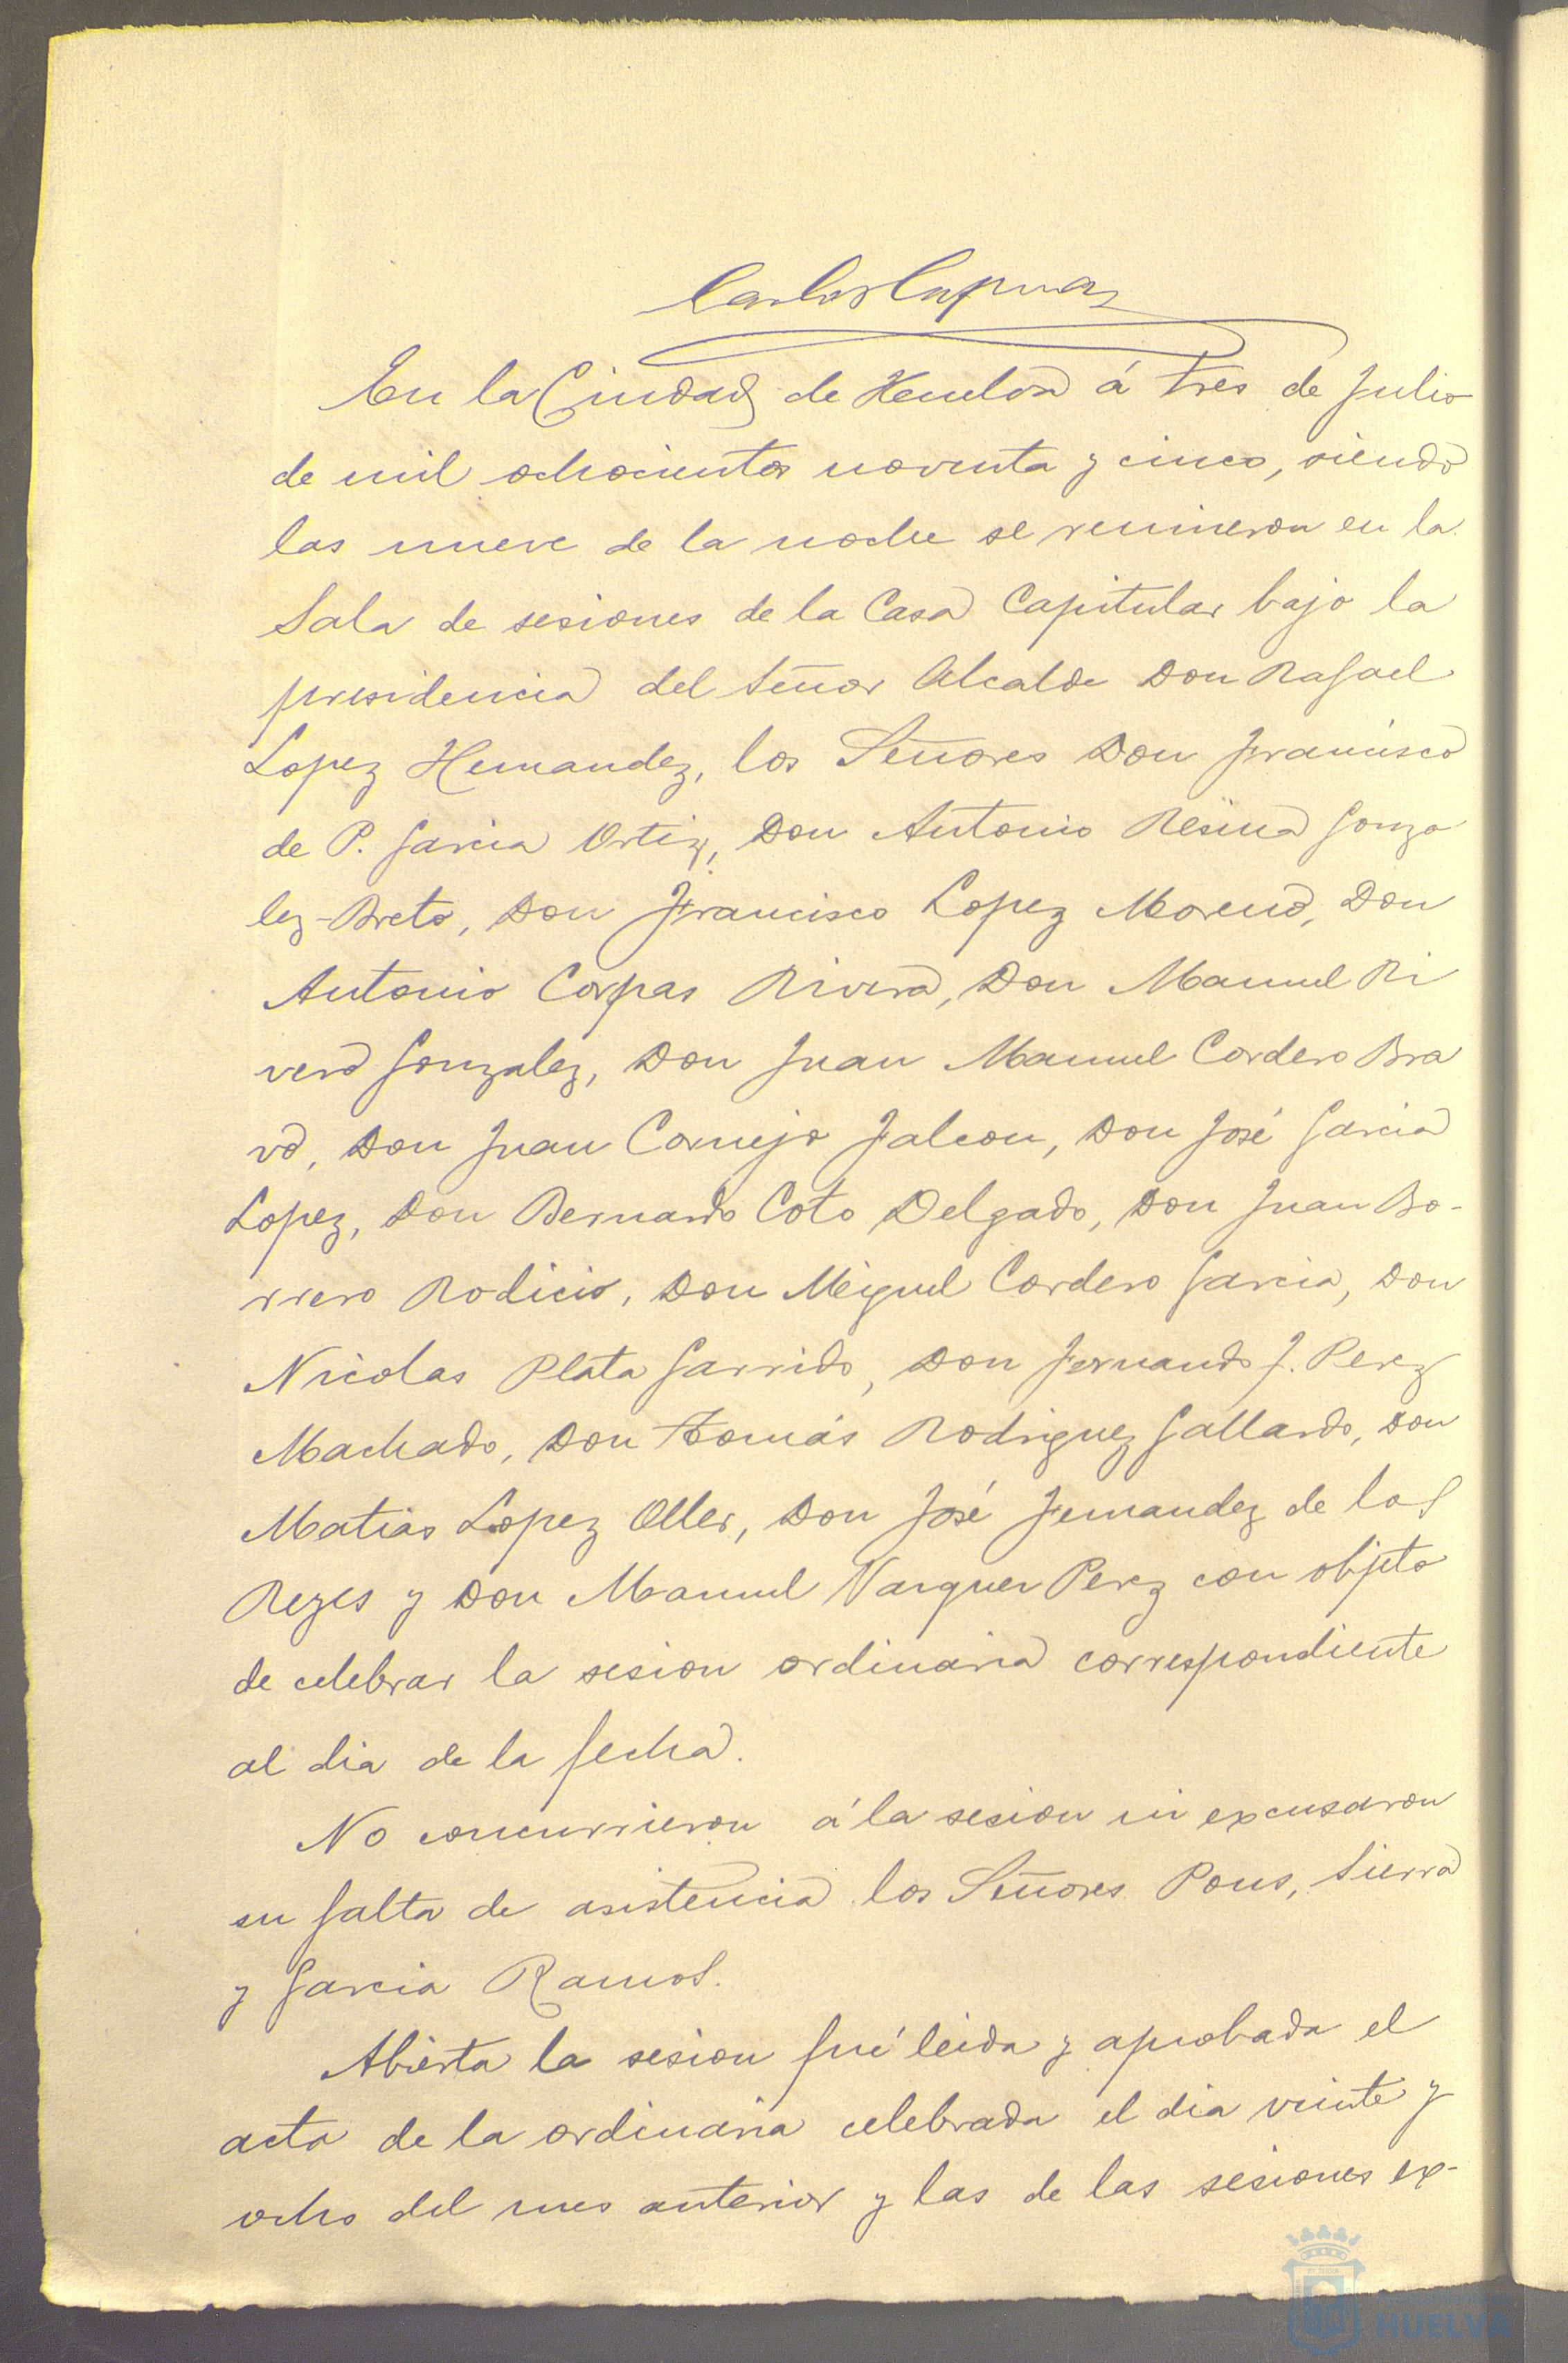 Carlos
En la Ciudad de Huelva á tres de Julio
de mil ochocientos noventa y cinco, siendo
las nueve de la noche se reunieron en la
Sala de sesiones de la Casa Capitular bajo la
presidencia del Señor Alcalde Don Rafael
Lopez Hernandez, los Señores Don Francisco
de P. Garcia Ortiz, Don Antonio Resina Gonza
lez-Breto, Don Francisco Lopez Moreno, Don
Antonio Corpas Rivera, Don Manuel Ri
vero Gonzalez, Don Juan Manuel Cordero Bra
vo, Don Juan Cornejo Falcon, Don José Garcia
Lopez, Don Bernardo Coto Delgado, Don Juan Bo-
rrero Rodicio, Don Miguel Cordero Garcia, Don
Nicolas Plata Garrido, Don Fernando J. Perez
Machado, Don Tomás Rodriguez Gallardo, Don
Matias Lopez Oller, Don José Fernandez de los
Reyes y Don Manuel Vazquez Perez con objeto
de celebrar la sesion ordinaria correspondiente
al dia de la fecha.
No concurrieron á la sesion ni excusaron
su falta de asistencia los Señores Pons, Sierra
y Garcia Ramos.
Abierta la sesion fué leida y aprobada el
acta de la ordinaria celebrada el dia veinte y
ocho del mes anterior y las de las sesiones ex-
HUELVA